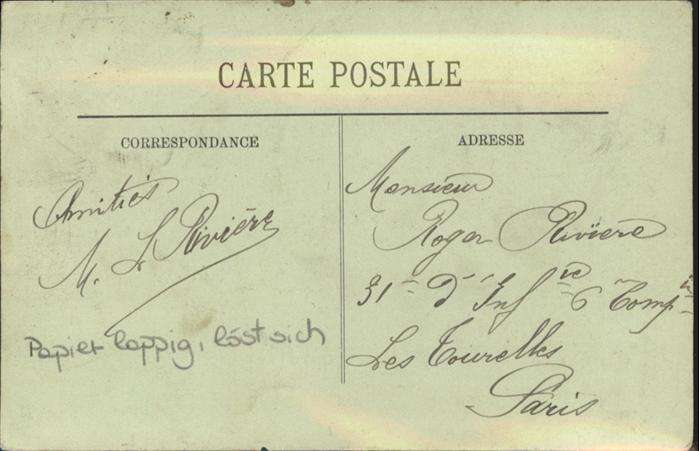 CARTE POSTALE
CORRESPONDANCE
Amitiés
M. L. Rivière
Papier lappig, löst sich
ADRESSE
Monsieur
Roger Rivière
31e D'Infie 6 Compie
Les Tourelles
Paris